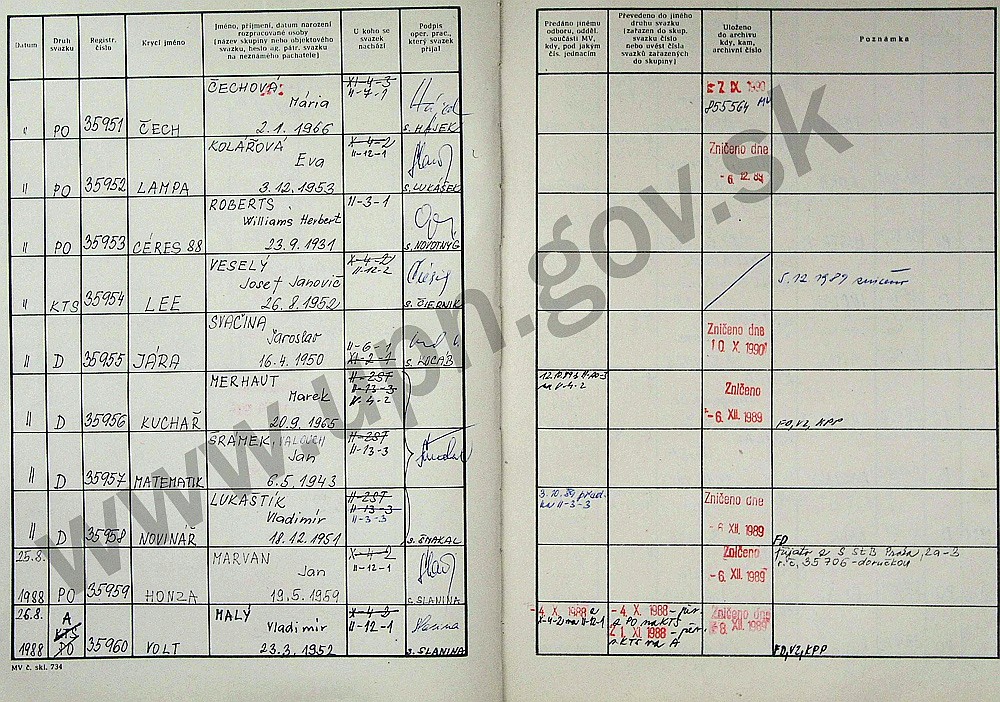 Datum
Druh svazku
Registr. číslo
Krycí jméno
Jméno, příjmení, datum narození
rozpracované osoby
(název skupiny nebo objektového
svazku, heslo ag. pátr. svazku
na neznámého pachatele)
U koho se
svazek
nachází
Podpis
oper. prac.,
který svazek
přijal
Předáno jinému
odboru, odděl.
součásti MV,
kdy, pod jakým
čís. jednacím
Převedeno do jiného
druhu svazku
(zařazen do skup.
svazku číslo
nebo uvést čísla
svazků zařazených
do skupiny)
Uloženo
do archivu
kdy, kam,
archivní číslo
Poznámka
ČECHOVÁ XI-4-3
Mária II-7-1
855564 MV
" PO 35951 ČECH 2.1. 1966 s. HÁJEK
KOLÁŘOVÁ X-4-2
Eva II-12-1
Zničeno dne
-6. 12. 89
" PO 35952 LAMPA 3.12. 1953 s. LUKÁŠEK
ROBERTS II-3-1
Williams Herbert
" PO 35953 CÉRES 88 23.9. 1931 s. NOVOTNÝ
VESELÝ X-4-2
Josef Janovič II-12-2
5.12 1989 zničeno
" KTS 35954 LEE 26.8. 1952 s. ČIERNIK
SVAČINA
Jaroslav II-6-1
Zničeno dne
10. X. 1990
" D 35955 JÁRA 16.4. 1950 XI-2-1
MERHAUT II-2ST
Marek II-13-3
V-4-2
Zničeno
-6. XII. 1989
" D 35956 KUCHAŘ 20.9. 1965 FO, VZ, KPP
ŠRÁMEK, VALOUCH II-2ST
Jan II-13-3
" D 35957 MATEMATIK 6.5. 1943
LUKAŠTÍK II-2ST
Vladimír II-13-3
II-3-3
3.10.89 před.
na II-3-3
Zničeno dne
-6 XII. 1989
" D 35958 NOVINÁŘ 18.12. 1951 s. ŠMAKAL FO
25.8. MARVAN X-4-2
Jan II-12-1
Zničeno
-6. XII. 1989
r.č. 35706-doručkou
1988 PO 35959 HONZA 19.5. 1959 s. SLANINA
26.8. A MALÝ X-4-2
KTS Vladimír II-12-1
-4. X. 1988 a
X-4-2 na II-12-1
-4. X. 1988 - pěr.
z PO na KTS
21. XI. 1988 - pěr.
z KTS na A
Zničeno dne
-8. XII. 1989
1988 PO 35960 VOLT 23.3. 1952 s. SLANINA FO, VZ, KPP
MV č. skl. 734
www.upn.gov.sk